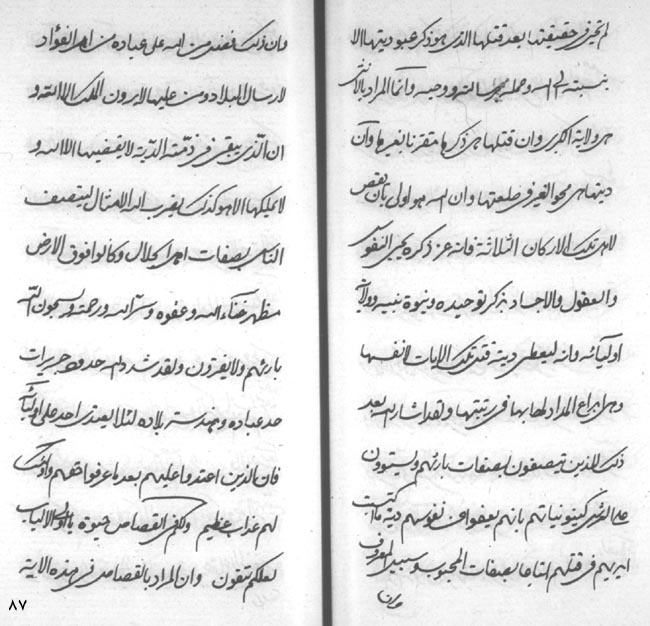 في حقيقتها بعد قتلها الذي هو ذكر عبوديتها الا
الى الله ووحيه وانما المراد بالانثى
هي ولاية الكبرى وان قتلها هي ذكرها مقترنا بغيرها وان
ديتها هي محو الغير في طلعتها وان الله هو اولى بان يقص
لاهل تلك الاركان الثلاثة فانه عز ذكره يحيى النفوس
والعقول والاجساد بذكر توحيده ونبوة نبيه وولاية
اوليائه وانه ليعطى دية قتل تلك الايات لانفسها
لها بها في رتبتها ولقد اشار اليه بعد
ذلك للذين يتصفون بصفات بارئهم ويستوون
على العرش كينونياتهم بانهم يعفوا عن نفوسهم دية ما اكتسبت
ايديهم في قتلهم اتباعا بصفات المحبوب وسبيل المعروف
وان
وان ذلك فضل من الله على عباده من اهل الفؤاد
البلاد ومن عليها لا يرون الملك الا الله و
ان الذي يبقى في ذمته الدية لا يقضيها الا الله و
لا يملكها الا هو كذلك يضرب الله الامثال ليتصف
الناس بصفات اهل الجلال وكانوا فوق الارض
مظهر غناء الله وعفوه وستر الله ورحمته ويسبحون الله
بارئهم ولا يفترون ولقد شدد الله حدود
عباده بلاده لئلا يعتدى احد على اوليائه
فان الذين اعتدوا عليهم بعد ما عرفوا حقهم واولئك
لهم عذاب عظيم ولكم في القصاص حيوة يا اولى الالباب
لعلكم تتقون وان المراد بالقصاص في هذه الاية
٨٧